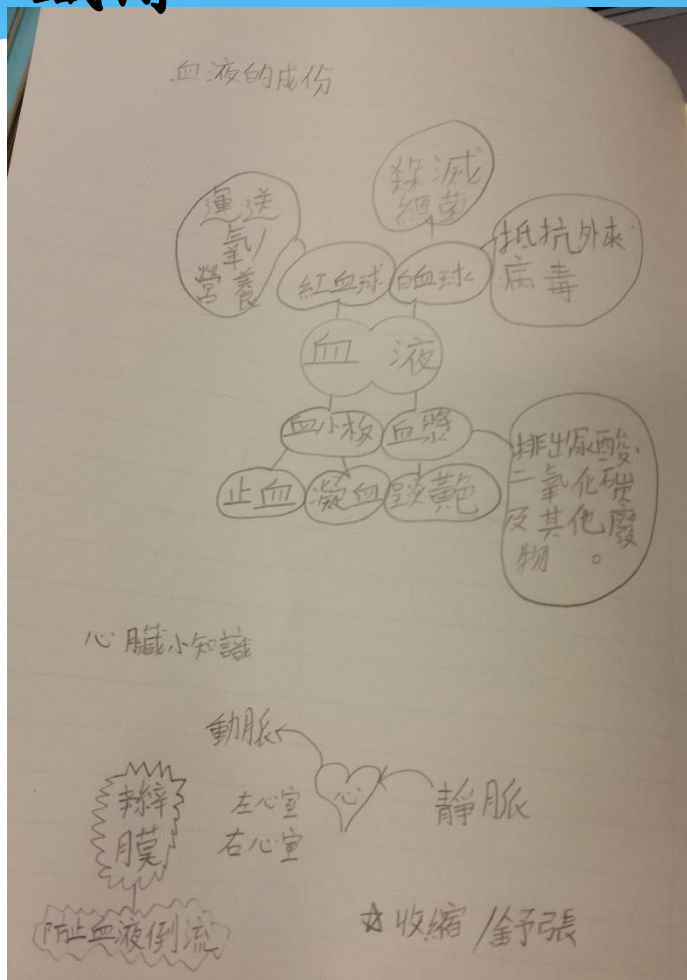 血液的成份
殺滅
細菌
運送
氧/
營養
抵抗外來
病毒
紅血球
白血球
血液
血小板
血漿
止血
凝血
呈淡黃色
排出尿酸、
二氧化碳
及其他廢
物。
心臟小知識
動脈
靜脈
心
左心室
右心室
瓣
膜
防止血液倒流
☆收縮/舒張